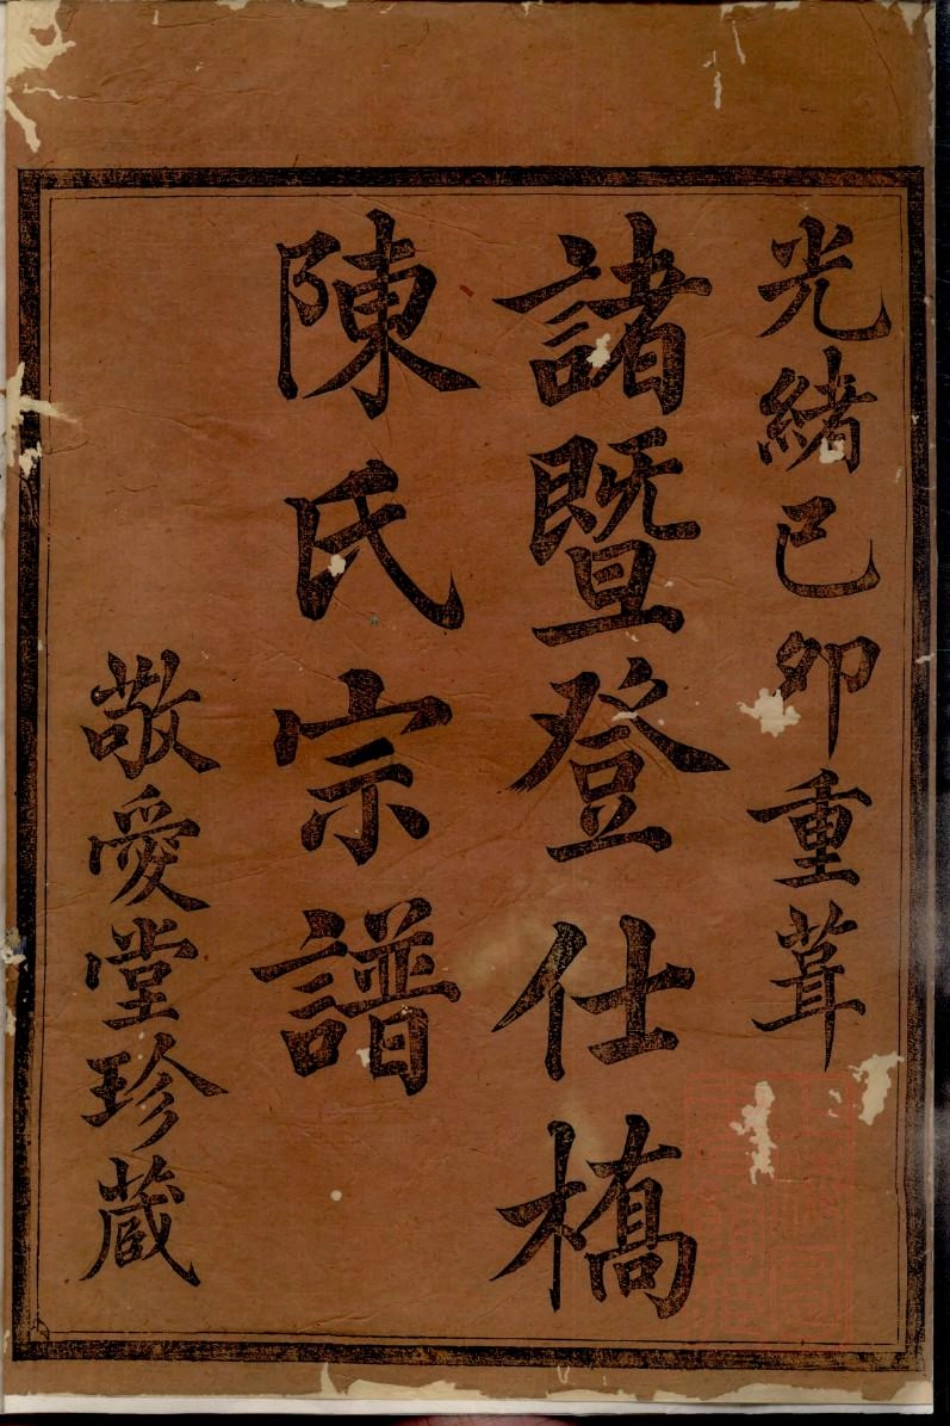 光緒己卯重葺
諸暨登仕橋
陳氏宗譜
敬愛堂珍蔵